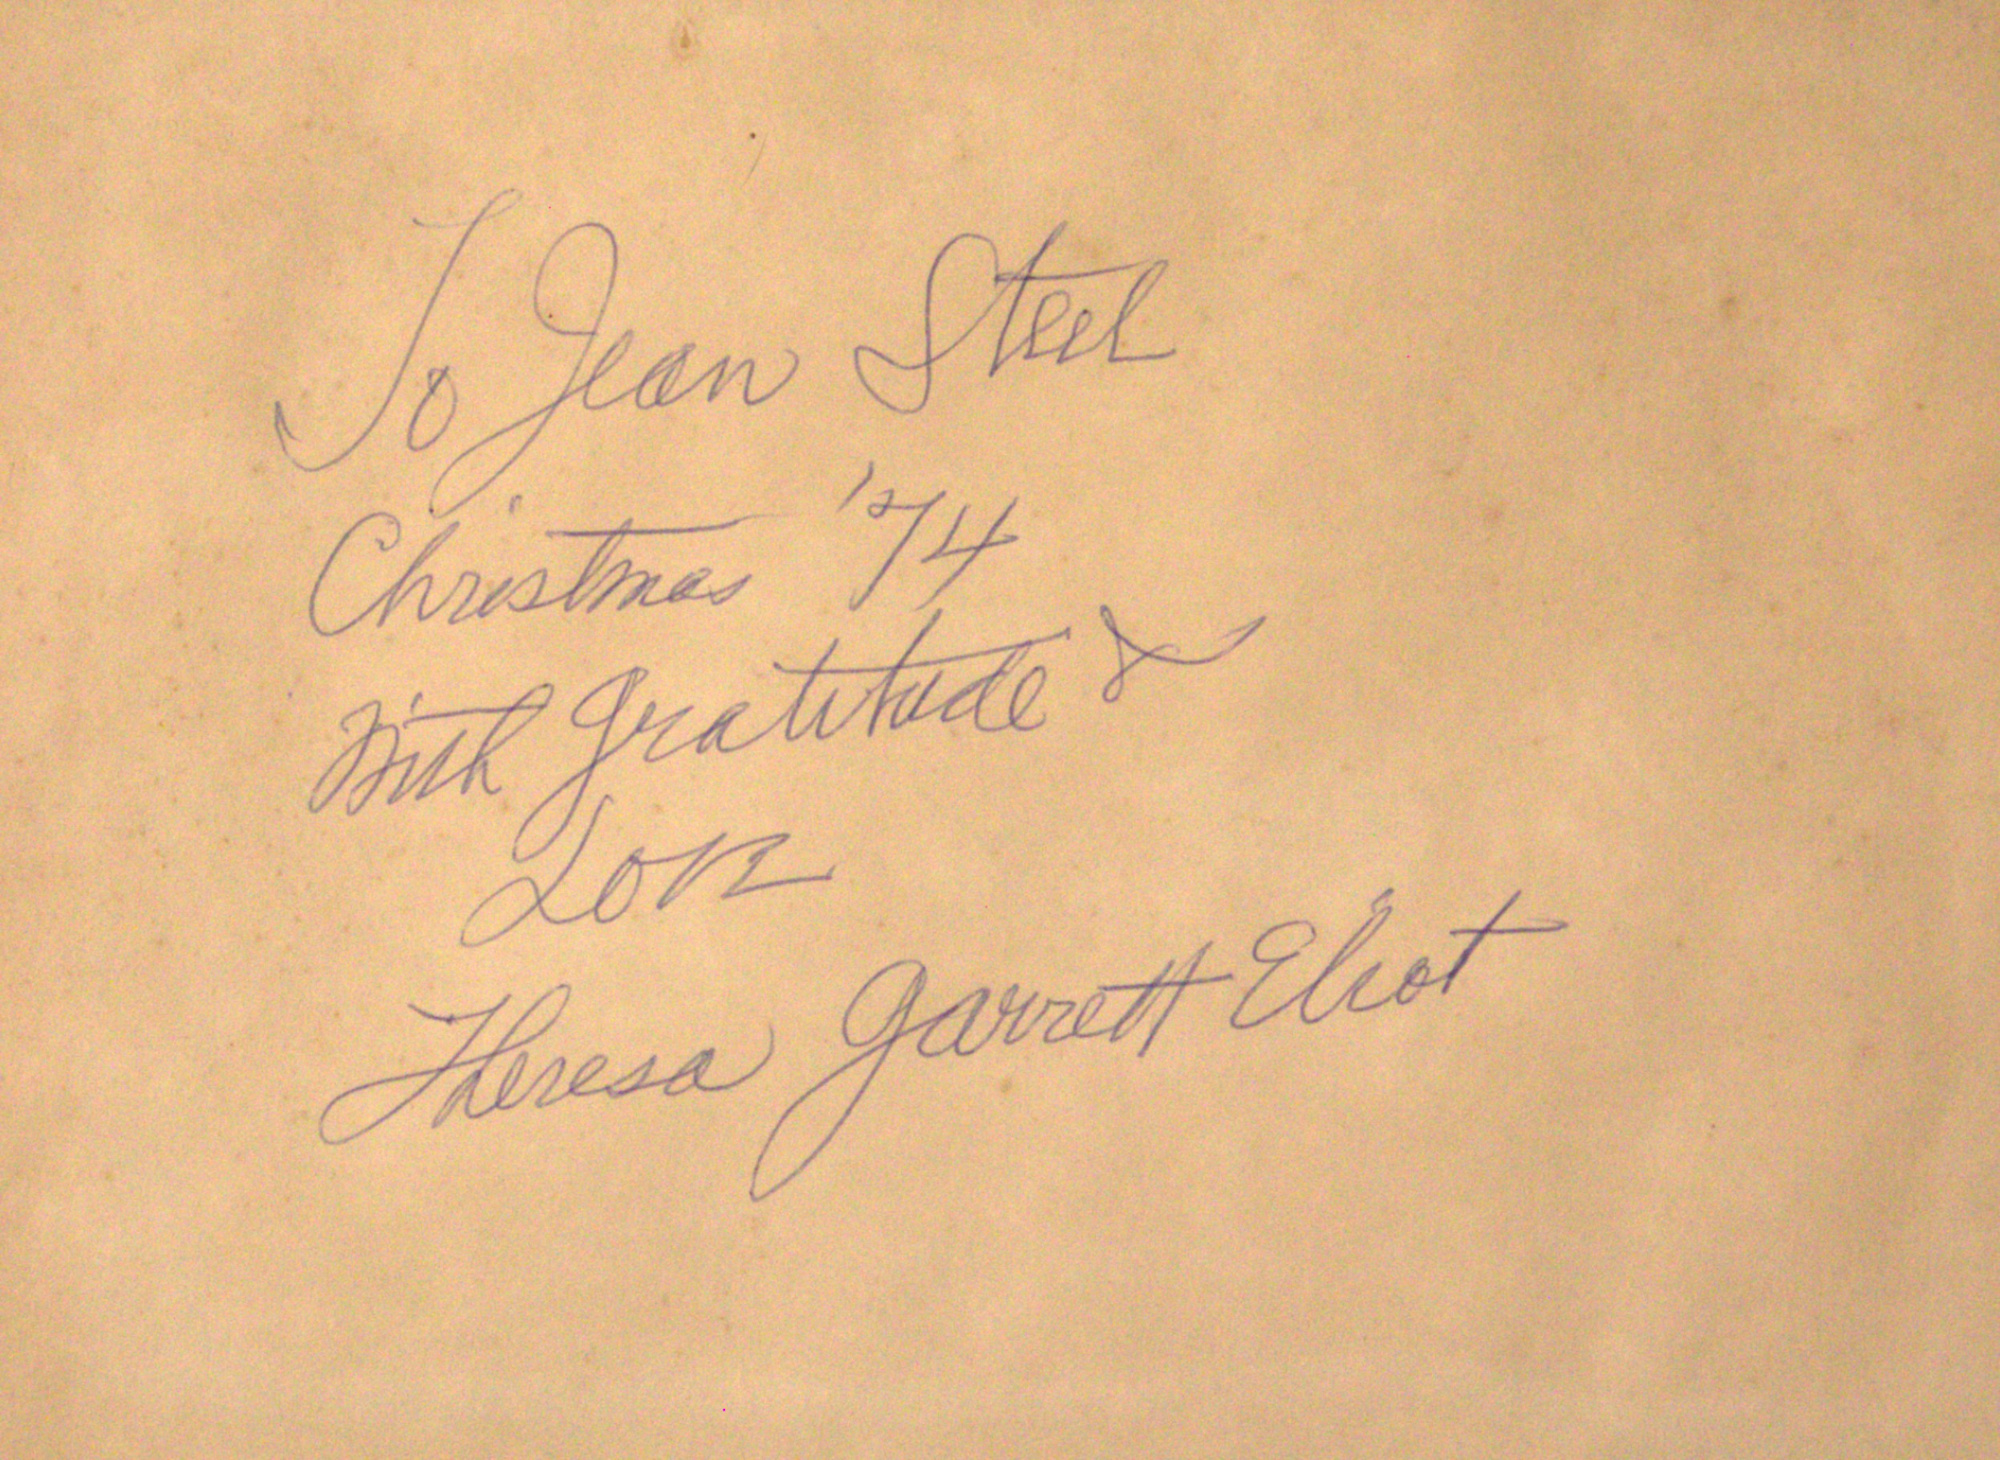 To Jean Steel
Christmas '74
With gratitude &
Love
Theresa Garrett Eliot